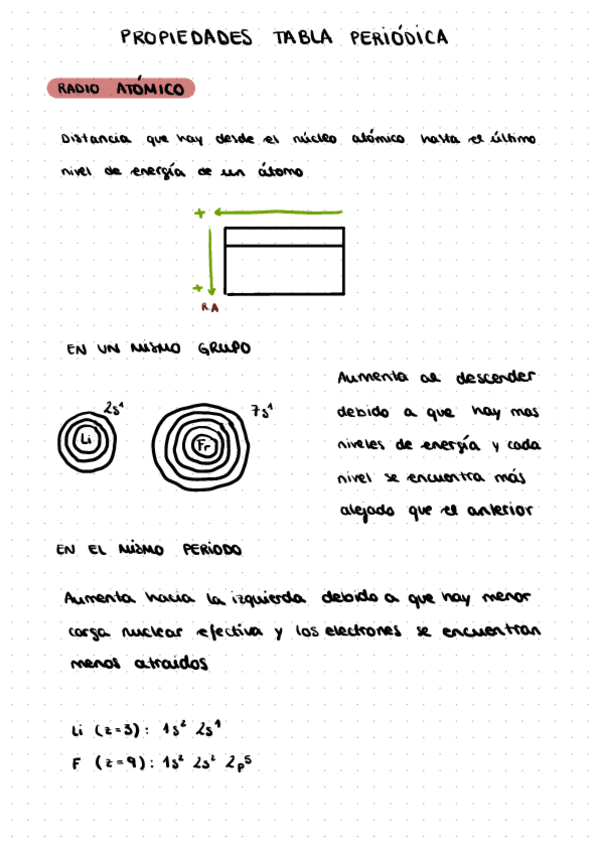 PROPIEDADES TABLA PERIÓDICA
RADIO ATÓMICO
Distancia que hay desde el núcleo atómico hasta el último
nivel de energía de un átomo
+
+
R.A
EN UN MISMO GRUPO
2s¹
Li
7s¹
Fr
Aumenta al descender
debido a que hay mas
niveles de energía y cada
nivel se encuentra más
alejado que el anterior
EN EL MISMO PERIODO
Aumenta hacia la izquierda debido a que hay menor
carga nuclear efectiva y los electrones se encuentran
menos atraidos
Li (z=3): 1s² 2s¹
F (z=9): 1s² 2s² 2p⁵